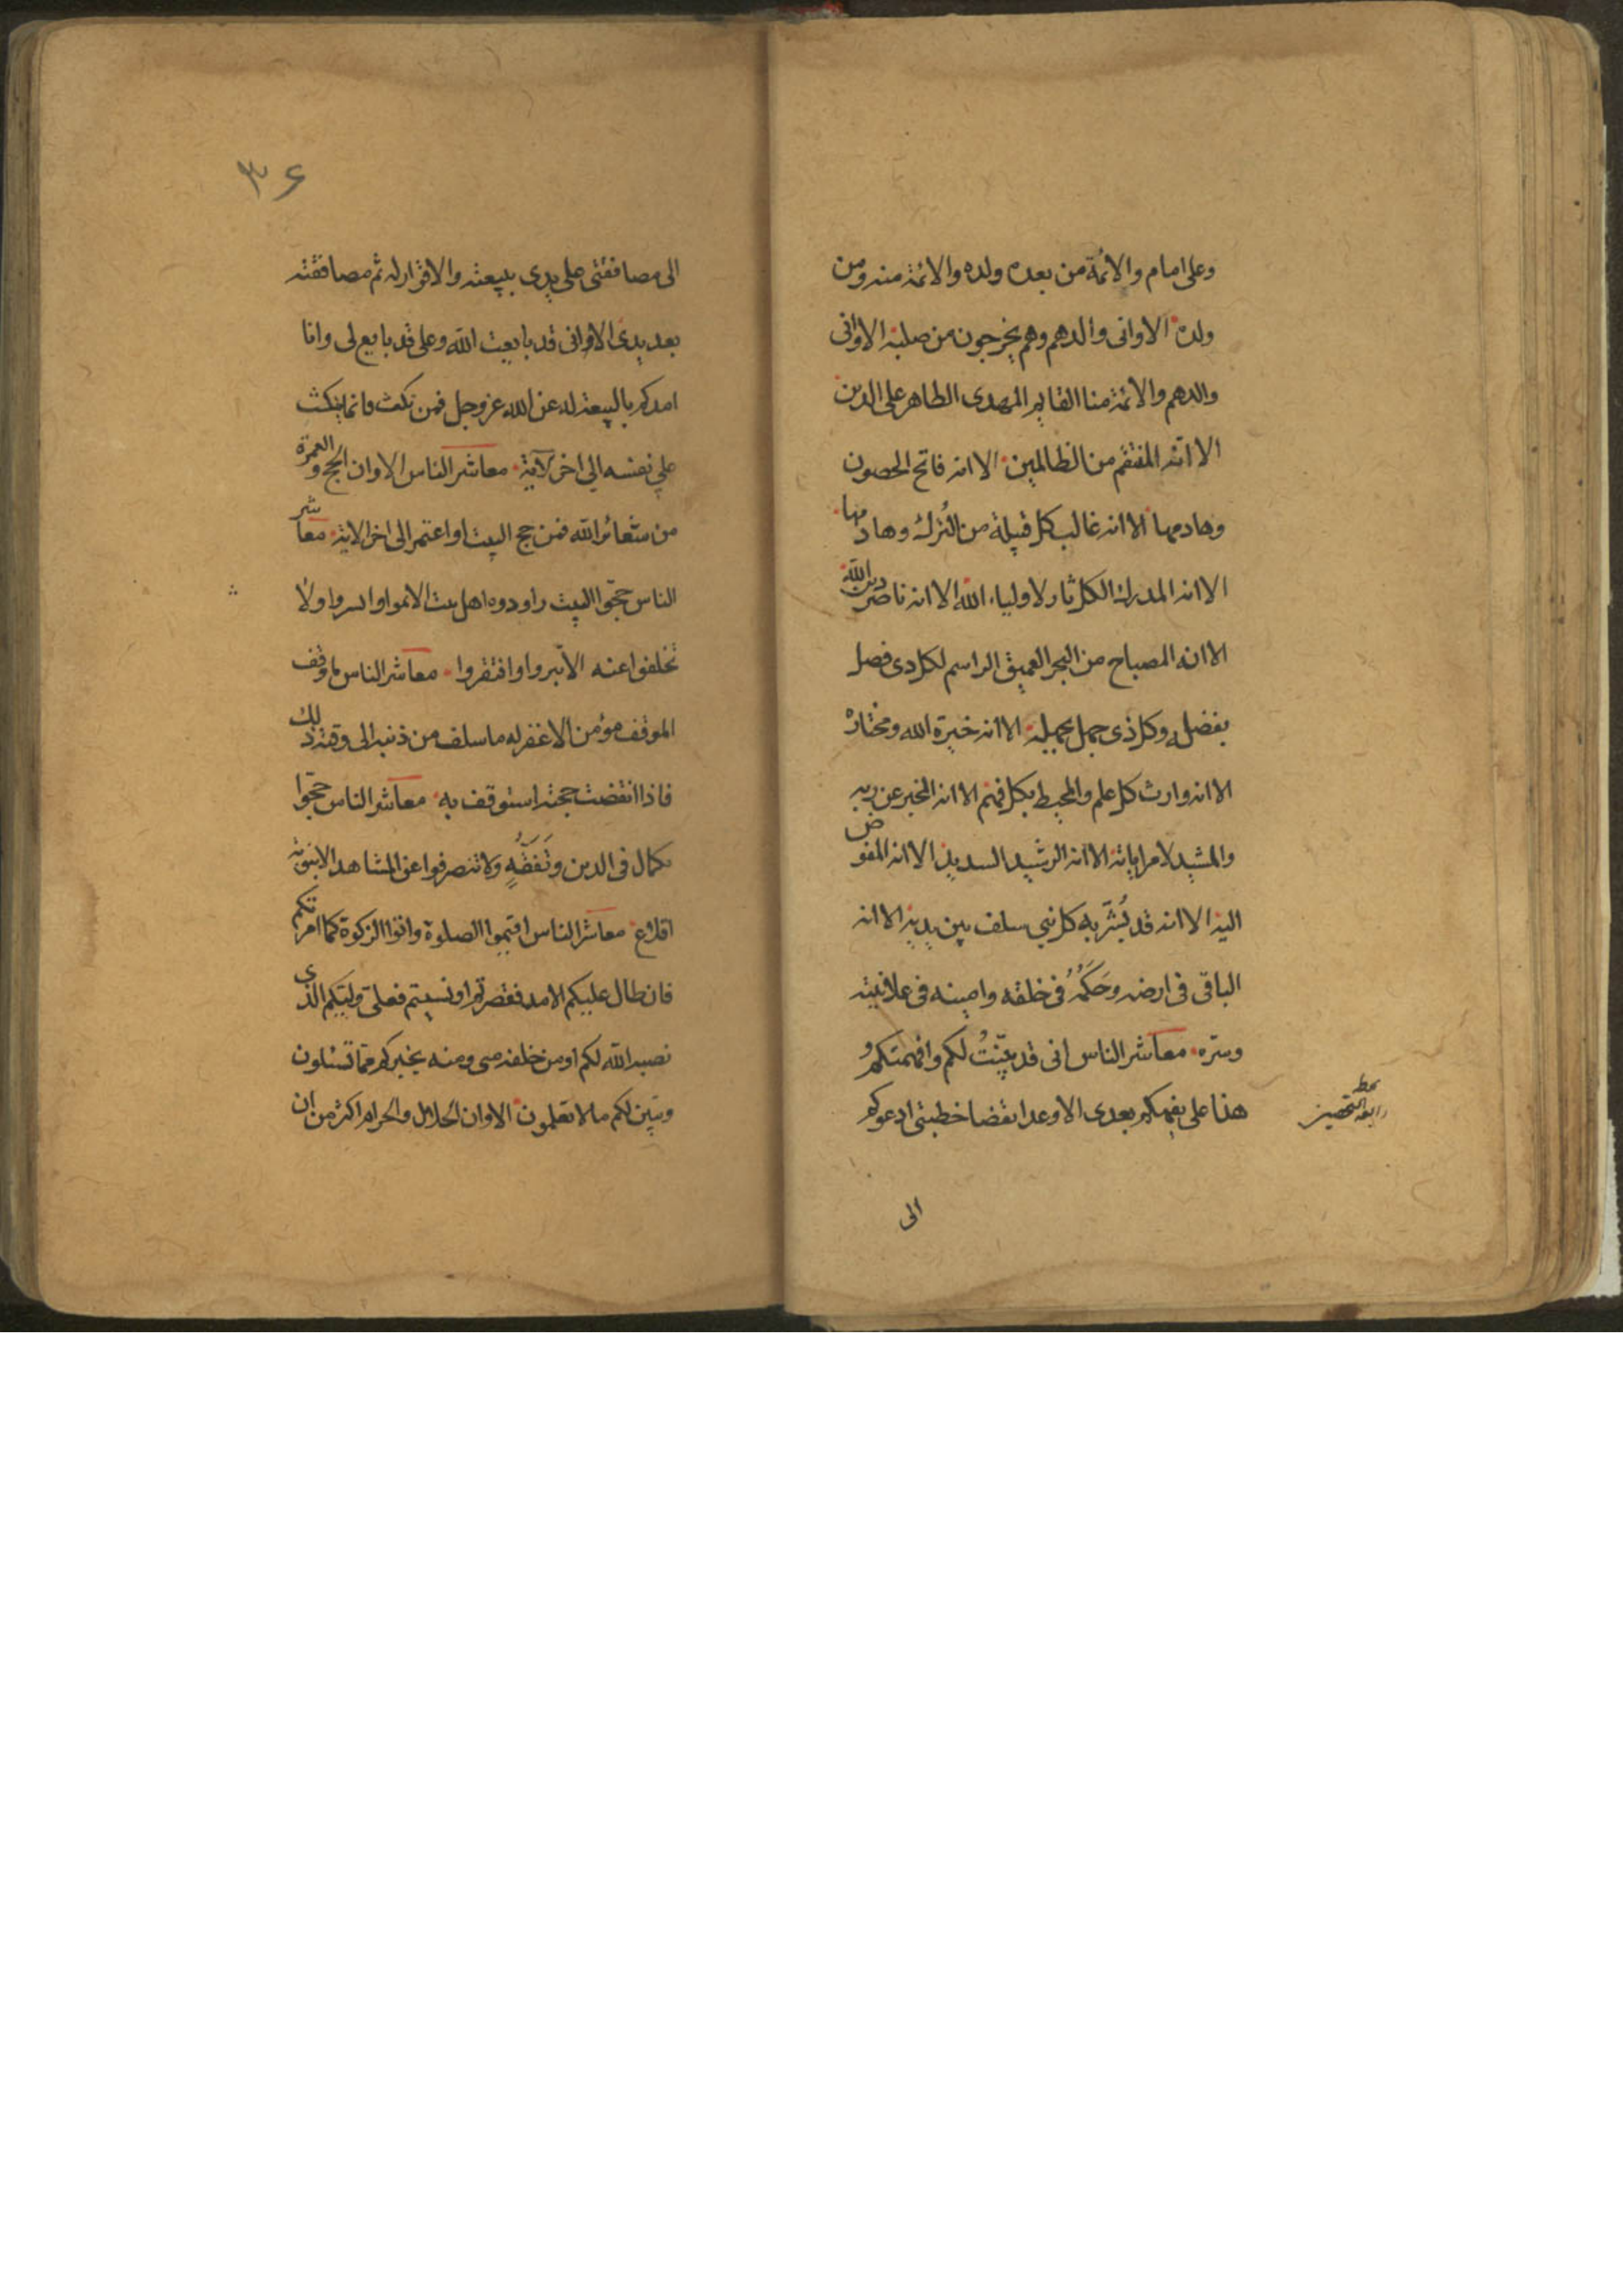 وعلى امام والائمة من بعده ولده والائمة منه ومن
ولده الا وانى والدهم وهم يخرجون من صلبه الا وانى
والدهم والائمة منا القايم المهدى الظاهر على الدين
الا انه المنتقم من الظالمين الا انه فاتح الحصون
وهادمها الا انه غالب كل قبيلة من الترك وهادمها
الا انه المدرك الكل ثار لاولياء الله الا انه ناصر دين الله
الا انه المصباح من البحر العميق الراسم لكل ذى فضل
بفضله وكل ذى جهل بجهله الا انه خيرة الله ومختاره
الا انه وارث كل علم والمحيط بكل فهم الا انه المخبر عن ربه
والمشيد لامر اياته الا انه الرشيد السديد الا انه المفوض
اليه الا انه قد بُشّر به كل نبى سلف بين يديه الا انه
الباقى فى ارضه وحَكَمُهُ فى خلقه وامينه فى علانيته
وسره معاشر الناس انى قد بيّنتُ لكم وافهمتكم و
هذا على يفهمكم بعدى الا وعند انقضا خطبتى ادعوكم
الى
٣٦
الى مصافقتى على يدى ببيعته والاقرار له ثم مصافقته
بعد يدى الا وانى قد بايعت الله وعلى قد بايع لى وانا
امدكم بالبيعة له عن الله عز وجل فمن نكث فانما ينكث
على نفسه الى اخر الآية معاشر الناس الا وان الحج والعمرة
من شعائر الله فمن حج البيت او اعتمر الى اخر الاية معاشر
الناس حجّوا البيت اهل بيت الا نموا وا ولا
تخلفوا عنه الا تبروا وافتقروا معاشر الناس ما وقف
الموقف مؤمن الا غفر له ما سلف من ذنبه الى وقته ذلك
فاذا انقضت حجته استوقف به معاشر الناس حجّوا
بكمال فى الدين وتَفَقُّهٍ ولا تنصرفوا عن المشاهد الا بتوبة
اقلاع معاشر الناس اقيموا الصلوة واتوا الزكوة كما امرتكم
فان طال عليكم الامد فقصرتم او نسيتم فعلى وليّكم الذى
نصبه الله لكم او من خلفه منى ومنه يخبركم عما تسئلون
ويبين لكم ما لا تعلمون الا وان الحلال والحرام اكثر من ان